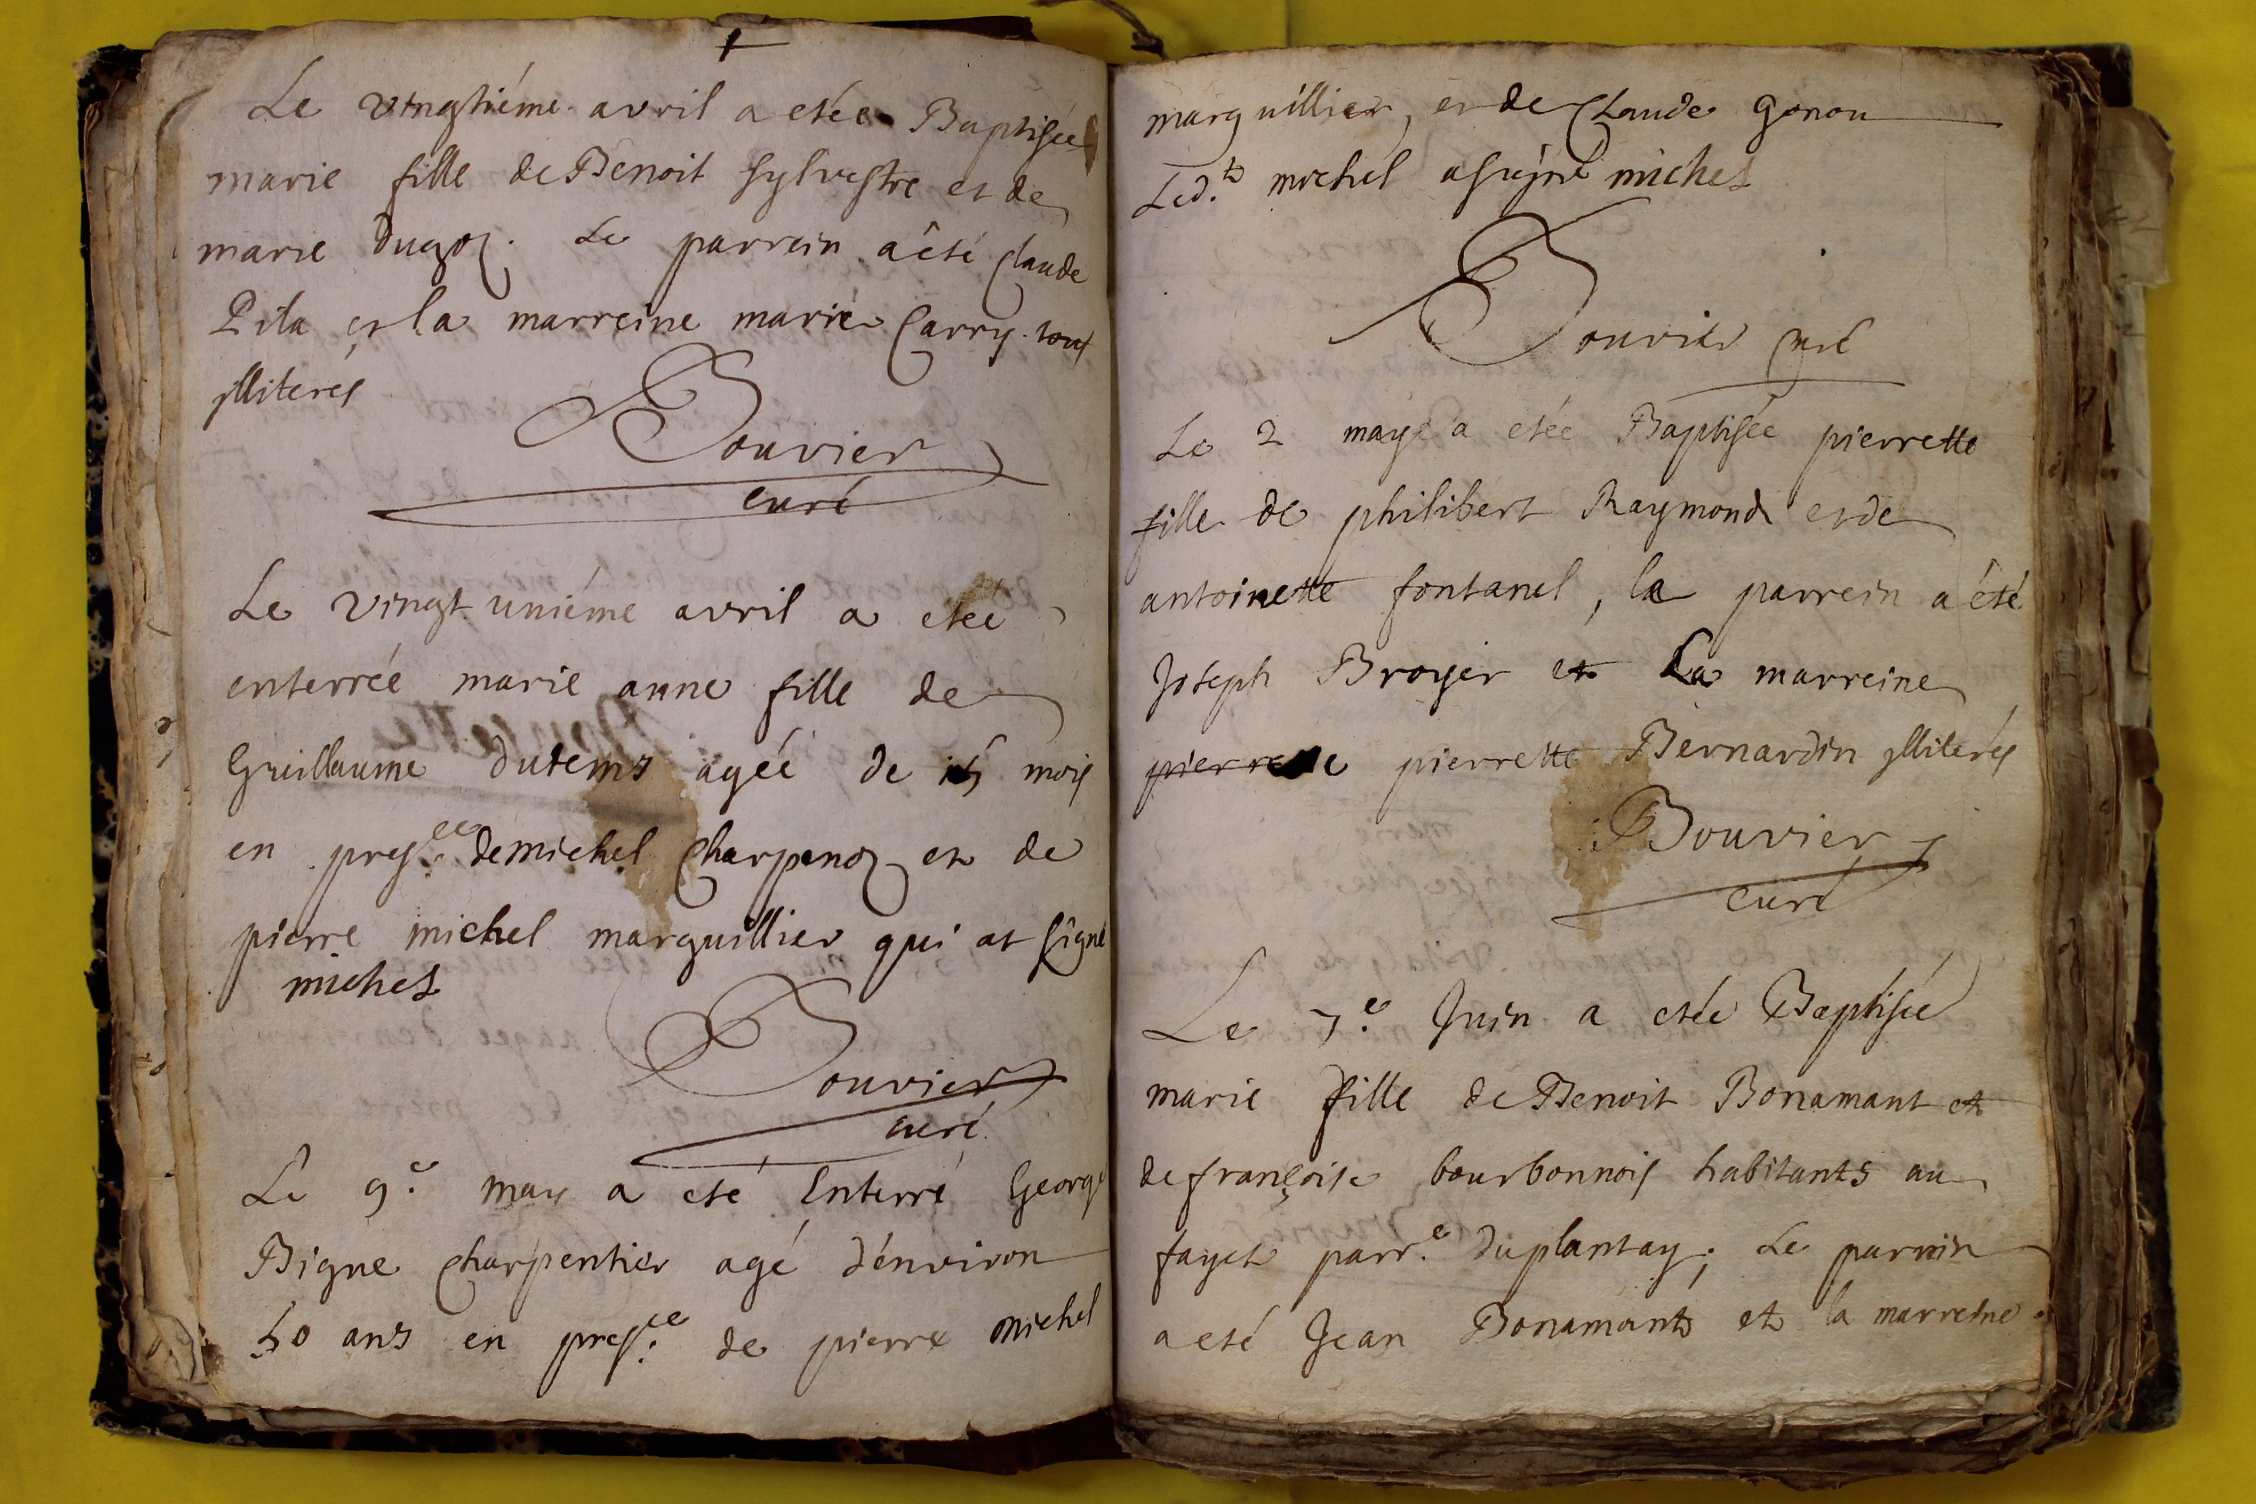 Le vingtiéme avril a etée Baptisée
marie fille de Benoit Sylvestre et de
marie Dugoz. Le parrein a êté Claude
Pita et la marreine marie Carry tous
illiterés
Bouvier
curé
Le vingt uniéme avril a eteé
enterrée marie anne fille de
Guillaume dutems agéé de mois
en pres.ce de michel Charpenoz et de
pierre michel marguillier qui at signé
michel
Bouvier
curé
Le 9.e may a eté Enterré George
Bigne Charpentier agé d'énviron
50 ans en pres.ce de pierre michel
marguillier, et de Claude Gonou
Led.t michel a signé michel
Bouvier curé
Le 2 may a etée Baptisée pierrette
fille de philibert Raymond et de
antoinette fontanel, le parrein a été
Joseph Broyer et La marreine
pierrette pierrette Bernardin illiterés
Bouvier
curé
Le 7.e Juin a etée Baptisée
marie fille de Benoit Bonamant et
de françoise bourbonnois habitants au
fayet parr.e duplantay; Le parrein
a eté Jean Bonamant et la marreine